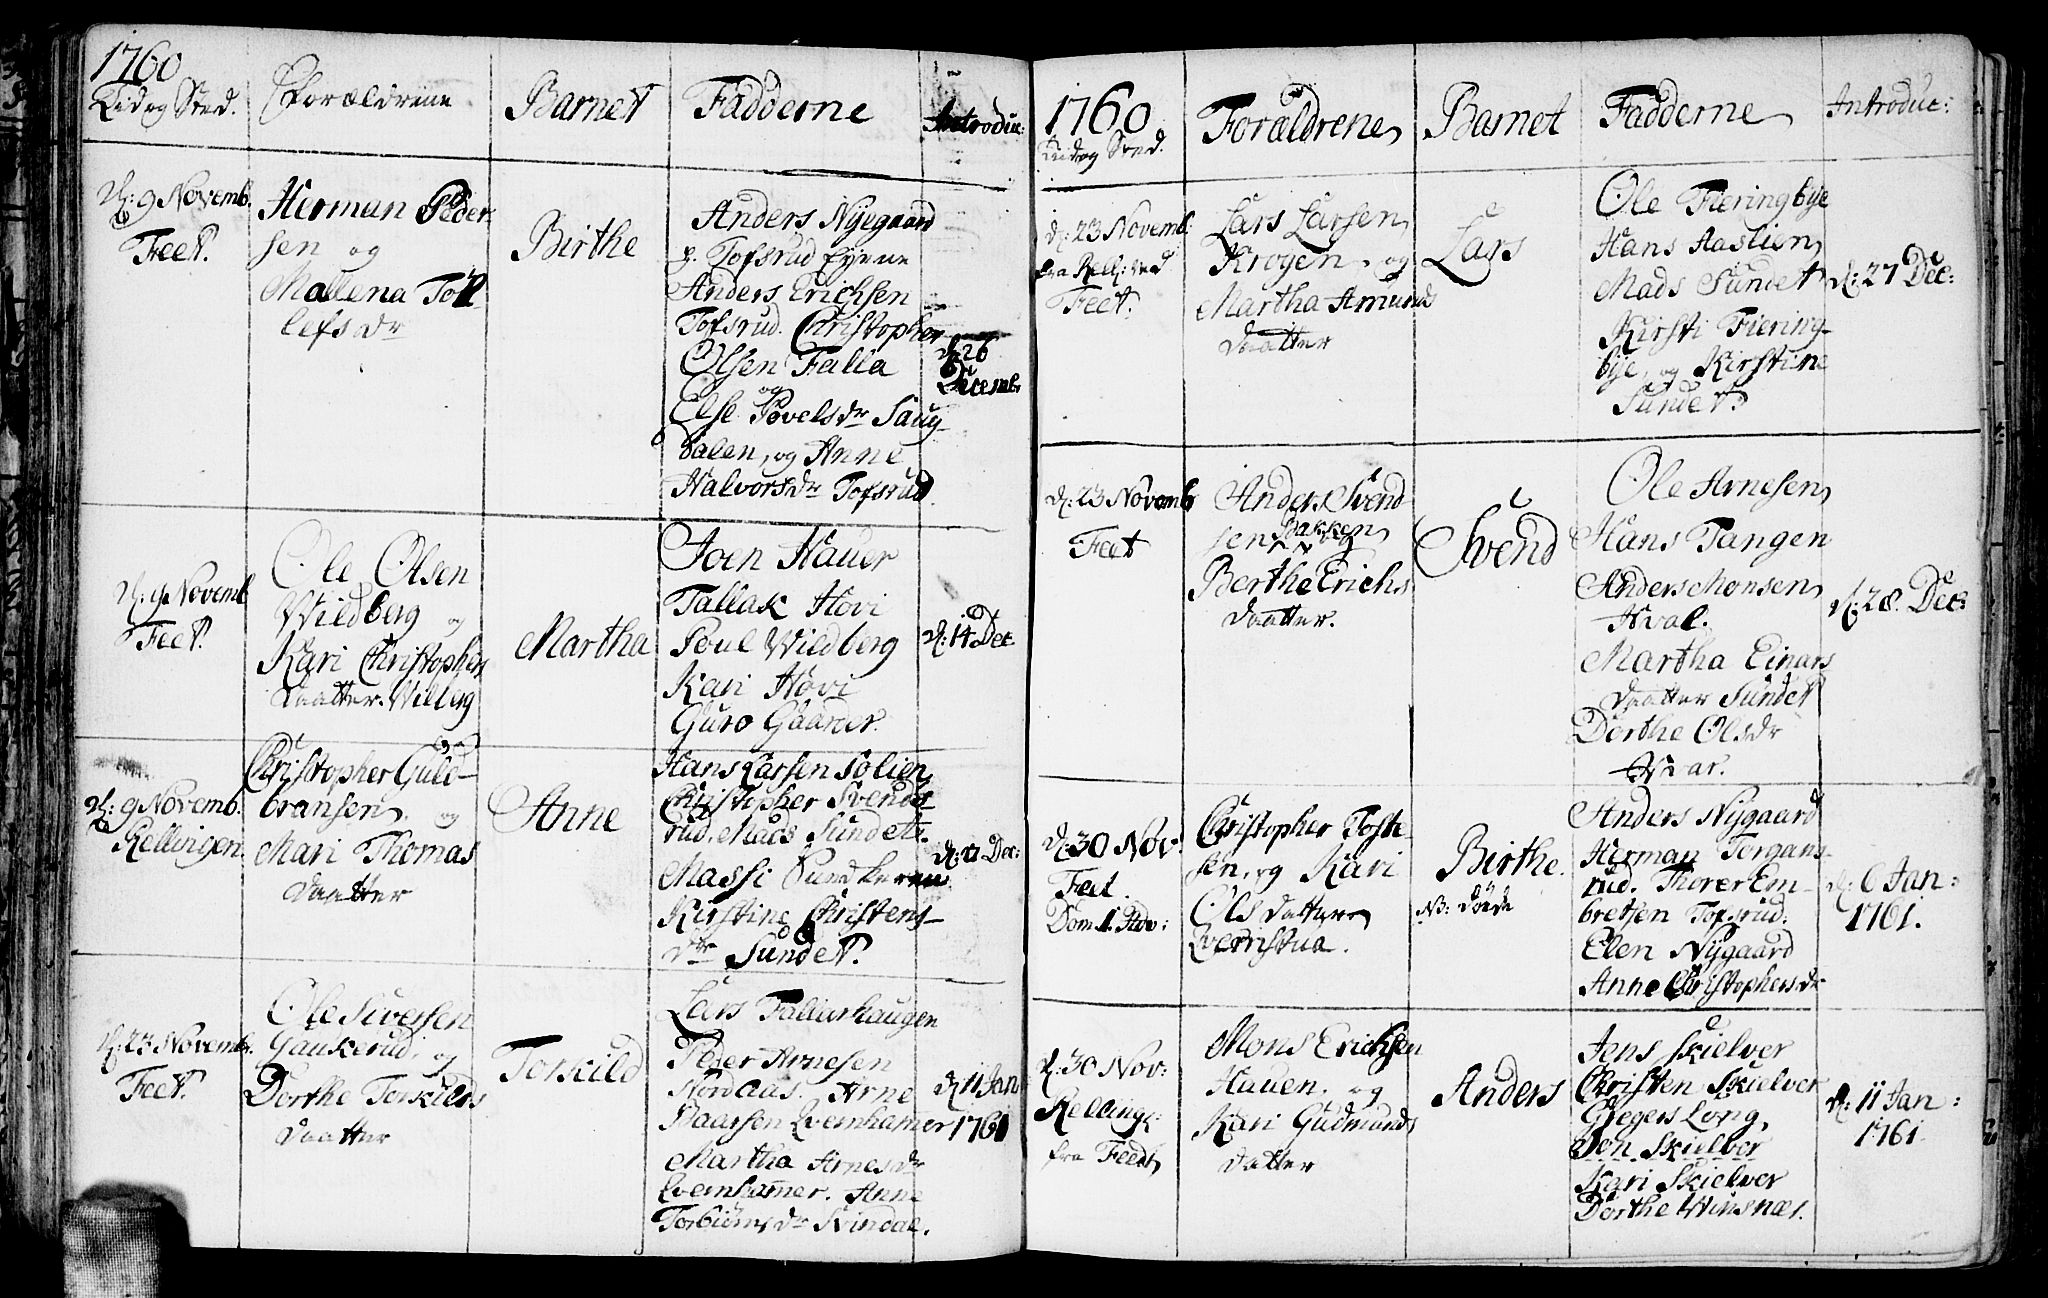 1760
Tid og Sted.
Forældrene
Barnet
Fadderne
Introduc:
d: 9 Novemb.
Feet.
Herman Peder
sen og
Mallena Tol
lefs dr
Birthe
Anders Nyegaard
Tofsrud Eyene
Anders Erichsen
Tofsrud. Christopher
Olsen Falla
og
Else Povels dr Saug
dalen, og Anne
Halvors dr Tofsrud
d: 26
Decemb:
d: 9 Novemb
Feet.
Ole Olsen
Wildberg og
Kari Christophers
daatter. Wilberg
Martha
Joen Hauer
Tallak Hovi
Poul Wildberg
Kari Hovi
Guro Gaarder.
d: 14 Dec
d: 9 Novemb.
Rellingen
Christopher Guld-
bransen, og
Mari Thomas
daatter
Anne
Hans Larsen Solien
Christopher Svends
rud. Mads Sundet.
Massi Sundkeren
Kirstine Christens-
dr Sundet.
Dec:
d: 23 Novemb.
Feet.
Ole Siversen
Gaukerud, og
Dorthe Torkilds
daatter
Torkild
Lars Fallashaugen
Peder Arnesen
Nordaas. Arne
Baarsen Qvernhamer
Martha Arnes dr
Qvernhamer. Anne
Torbiørns dr Svindal.
d: 11 Jan
1761
1760
Tid og Sted.
Forældrene
Barnet
Fadderne
Introduc:
d: 23 Novemb:
fra Rell: ved
Feet.
Lars Larsen
Krogen, og
Martha Amunds
daatter
Lars
Ole Fieringbye
Hans Aaslien
Mads Sundet
Kirsti Fiering-
bye, og Kirstine
Sundet.
d: 27 Dec:
d: 23 Novemb
Feet
Anders Svend
sen Bakken
og
Berthe Erichs
daatter.
Svend
Ole Arnesen
Hans Tangen
Anders Monsen
Hval.
Martha Einars
daatter Sundet
Dorthe Ols dr
Hvar.
d: 28. Dec:
d: 30 Nov:
Feet.
Dom 1. Adv:
Christopher Joste
sen, og Kari
Ols datter
Qvernstua.
Birthe.
NB: døde
Anders Nygaard
Herman Torgans-
rud. Thorer Em-
bretsen Tofsrud.
Elen Nygaard
Anne Christophers dr
d: 6 Jan:
1761.
d: 30 Nov:
Relling:
fra Feedt
Mons Erichsen
Hauen, og
Kari Gudmunds
datter
Anders
Jens Skielver
Christen Skielver
Gregers Long,
Jon Skielver
Kari Skielver
Dorthe Winsnæs.
d: 11 Jan:
1761.